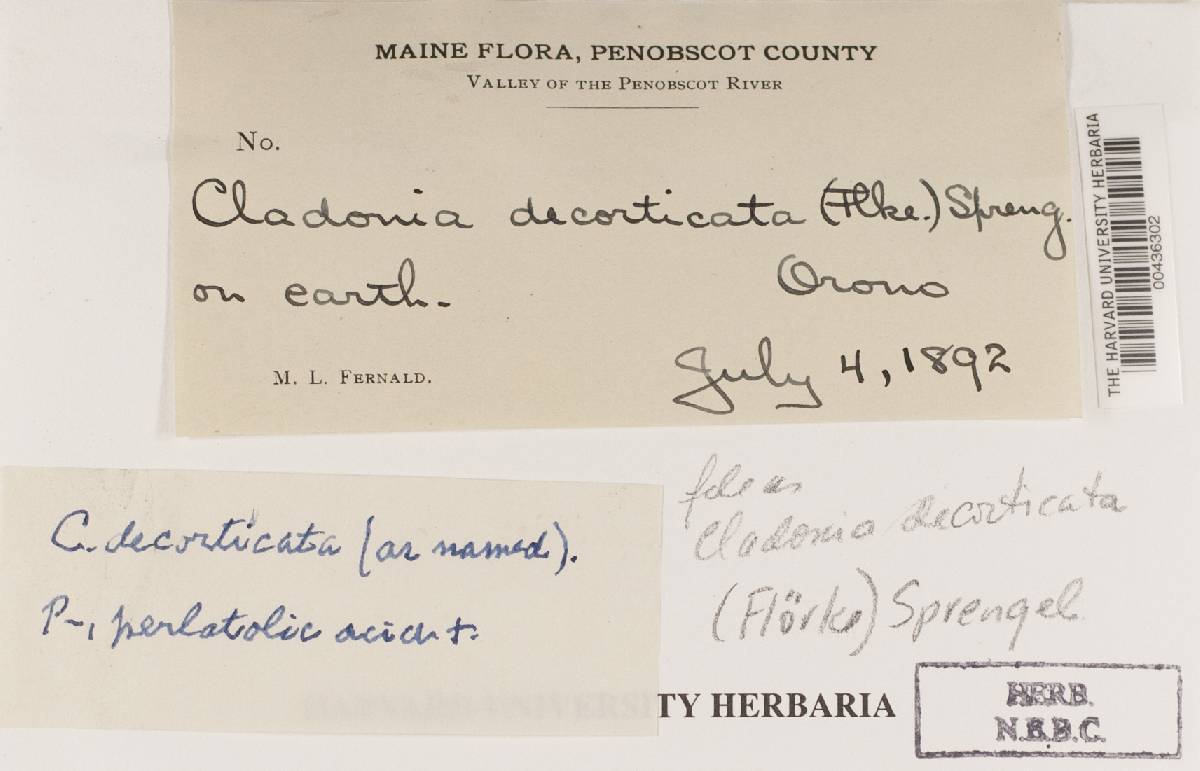 MAINE FLORA, PENOBSCOT COUNTY
VALLEY OF THE PENOBSCOT RIVER
No.
Cladonia decorticata (Flke.) Spreng.
on earth.
Orono
M. L. FERNALD.
July 4, 1892
THE HARVARD UNIVERSITY HERBARIA
00436302
C. decorticata (as named).
P-, perlatolic acid +.
file as
Cladonia decorticata
(Flörke) Sprengel
HARVARD UNIVERSITY HERBARIA
HERB.
N.E.B.C.